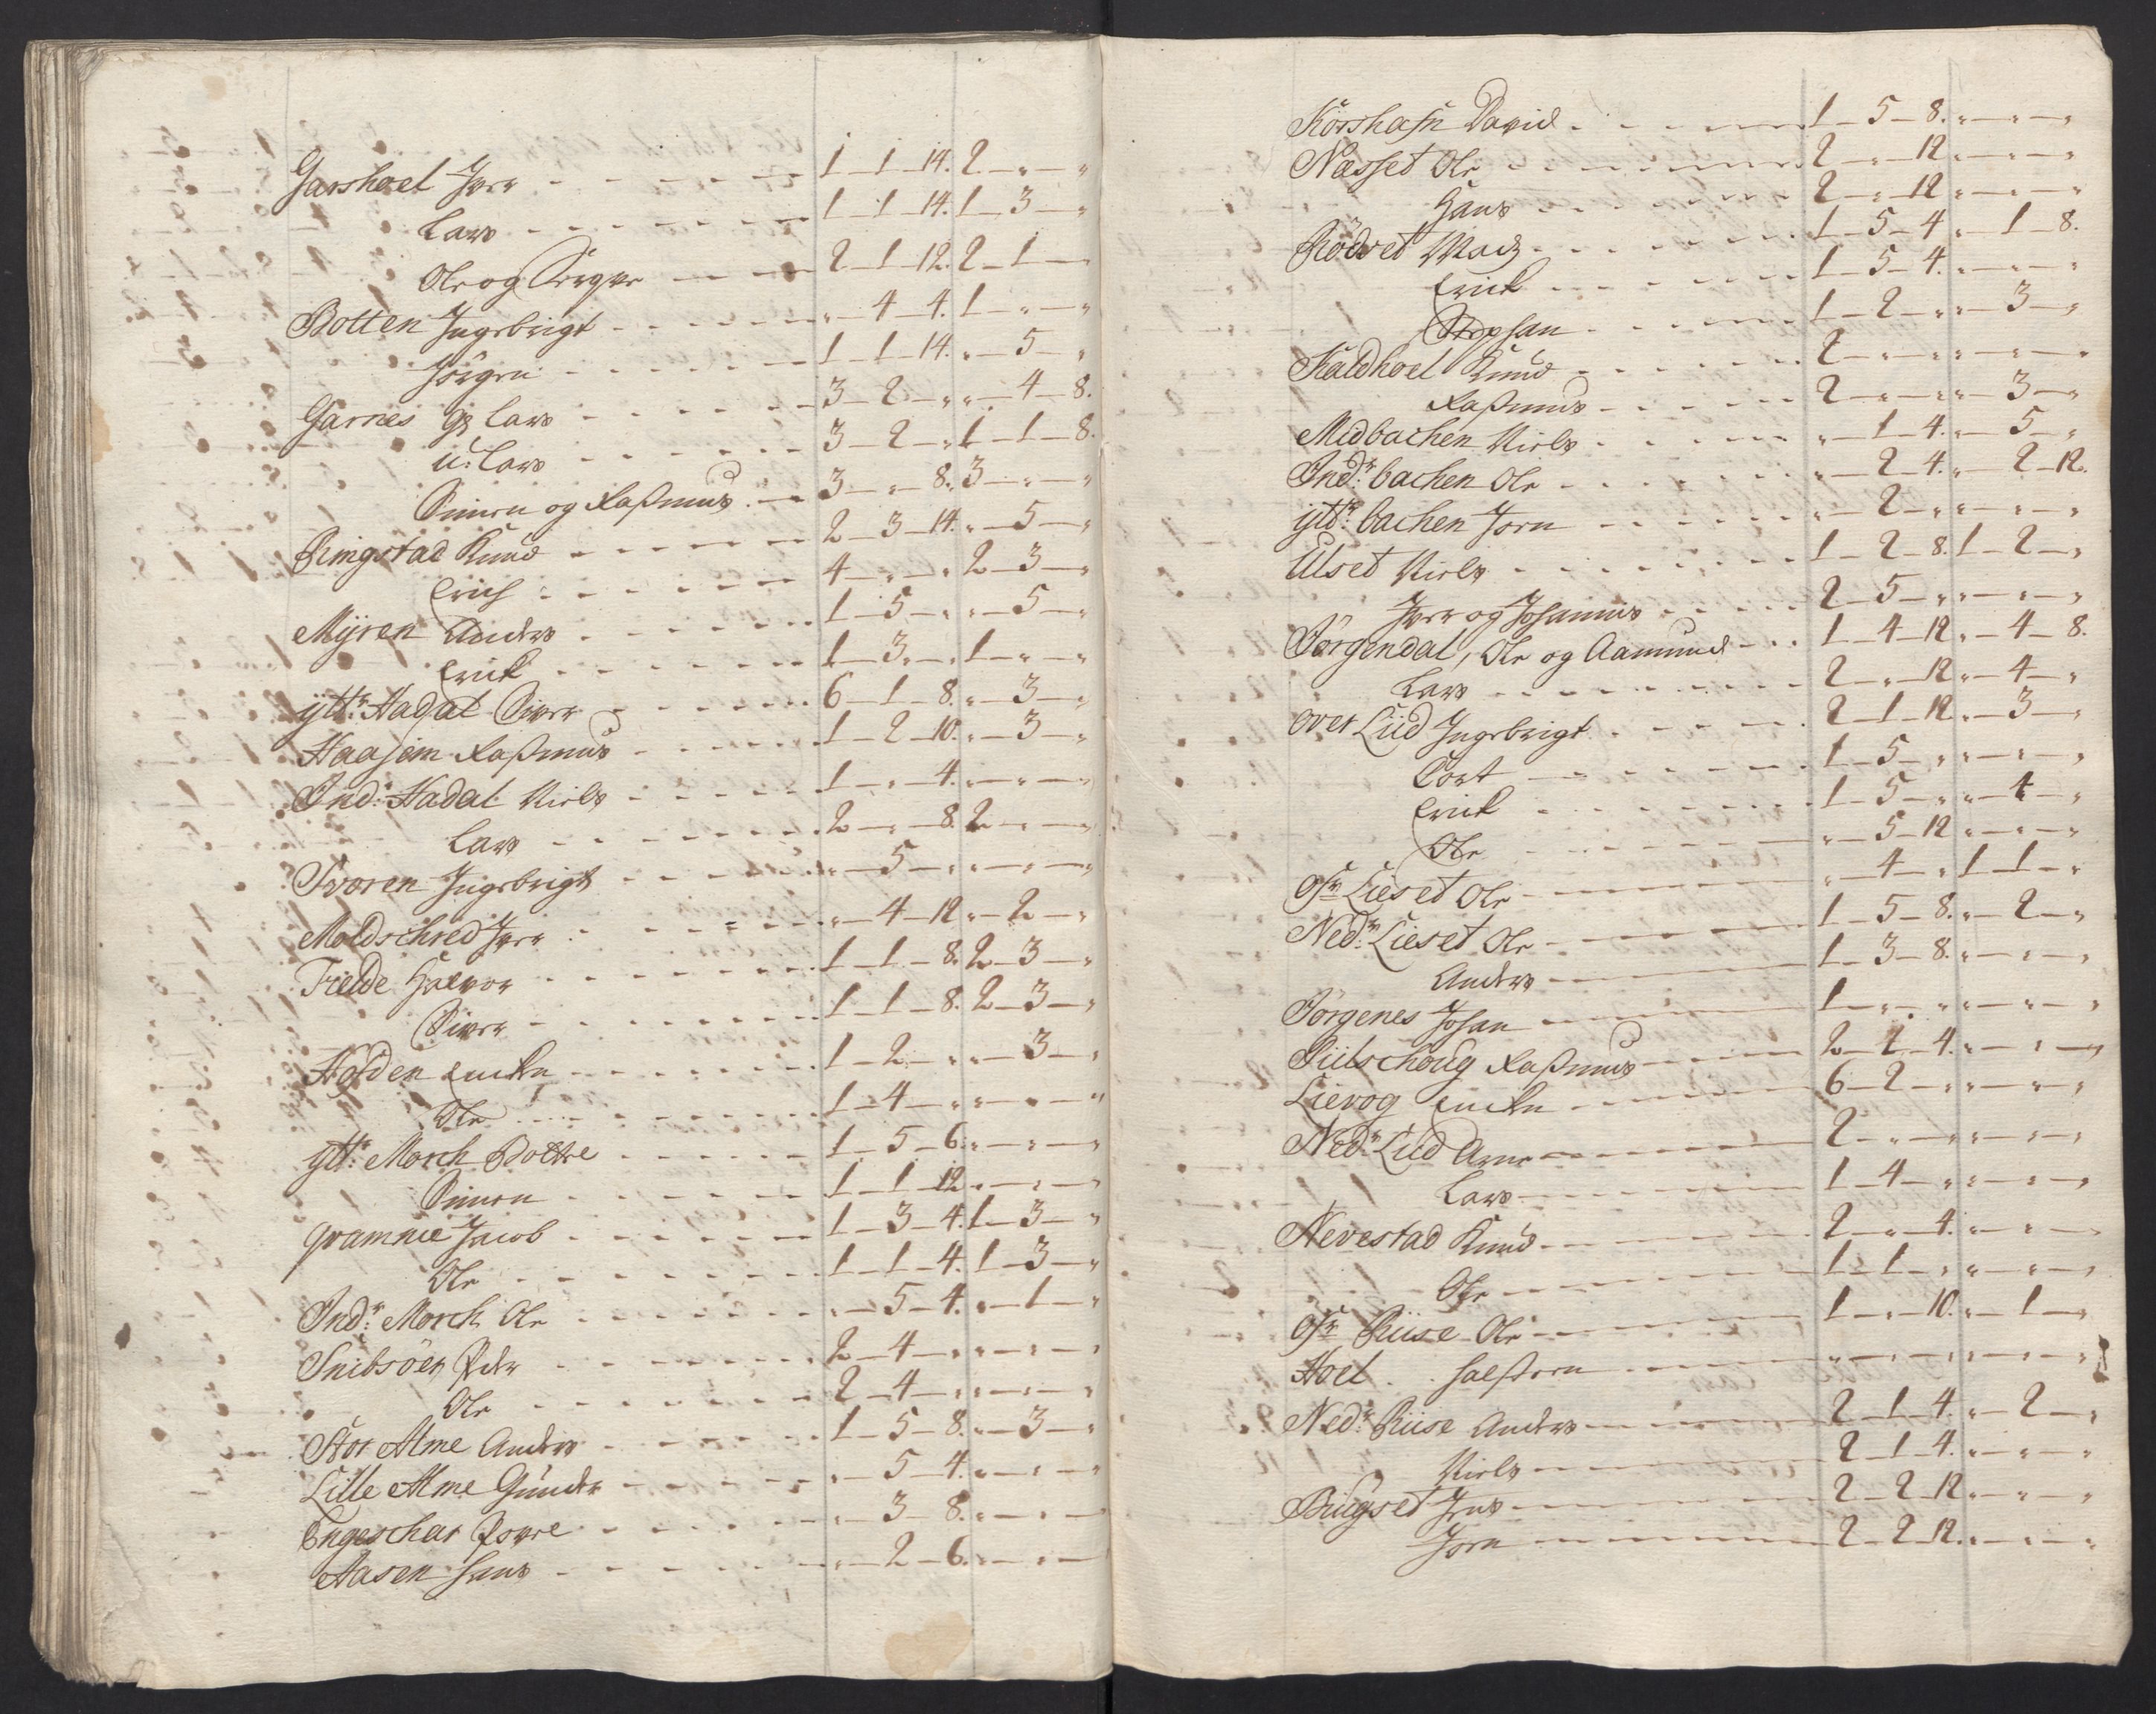 Garshoel Iver - - - - - - 1 - 1 - 14. 2 - „ - „
Lars - - - - - - 1 - 1 - 14. 1 - 3 - „
Ole og Sirgne - - - 2 - 1 - 12. 2 - 1 - „
Botten Ingebrigt - - - - - „ - 4 - 4. 1 - „ - „
Jörgen - - - - - 1 - 1 - 14. „ - 5 - „
Garnes gl Lars - - - - - 3 - 2 - „ „ - 4 - 8.
u: Lars - - - - - 3 - 2 - „ 1 - 1 - 8.
Simen og Rasmus - - 3 - „ - 8. 3 - „ - „
Ringstad Knud - - - - - 2 - 3 - 14. „ - 5 - „
Erich - - - - - 4 - „ - „ 2 - 3 - „
Mÿren Anders - - - - - 1 - 5 - „ „ - 5 - „
Erick - - - - - 1 - 3 - „ 1 - „ - „
ÿtt: Hadal Siver - - - - - 6 - 1 - 8. „ - 3 - „
Haasem Rasmus - - - - 1 - 2 - 10. „ - 3 - „
Ind: Hadal Niels - - - - 1 - „ - 4. „ - „ - „
Lars - - - - - 2 - „ - 8. 2 - „ - „
Svoren Ingebrigt - - - - „ - 5 - „ „ - „ - „
Moldschred Iver - - - - „ - 4 - 12 „ - 2 - „
Fielde Halvor - - - - - 1 - 1 - 8. 2 - 3 - „
Siver - - - - - 1 - 1 - 8. 2 - 3 - „
Holden Encken - - - - - 1 - 2 - „ „ - 3 - „
Ole - - - - - 1 - 4 - „ „ - „ - „
ÿtt: Morch Bottre - - - - 1 - 5 - 6. „ - „ - „
Simen - - - - - 1 - 1 - 12 „ - „ - „
qvamme Jacob - - - - - 1 - 3 - 4. 1 - 3 - „
Ole - - - - - 1 - 1 - 4. 1 - 3 - „
Ind: Morch Ole - - - - - „ - 5 - 4. „ - 1 - „
Snibsöer Peder - - - - - 2 - 4 - „ „ - „ - „
Ole - - - - - 2 - 4 - „ „ - „ - „
Stor Alme Anders - - - - 1 - 5 - 8. „ - 3 - „
Lille Alme Gunder - - - - „ - 5 - 4. „ - „ - „
Engeschar Povre - - - - „ - 3 - 8. „ - „ - „
Aasen Hans - - - - - „ - 2 - 6. „ - „ - „
Korshafn David - - - - 1 - 5 - 8. „ - „ - „
Næsset Ole - - - - - 2 - „ - 12 „ - „ - „
Hans - - - - - 2 - „ - 12 „ - „ - „
Rödset Mads - - - - - 1 - 5 - 4 „ - 1 - 8.
Erick - - - - - 1 - 5 - 4. „ - „ - „
Stephan - - - - - 1 - 2 - „ „ - 3 - „
Kaldhoel Knud - - - - 2 - „ - „ „ - „ - „
Rasmus - - - - - 2 - „ - „ „ - 3 - „
Midbachen Niels - - - - „ - 1 - 4. „ - 5 - „
Ind: bachen Ole - - - - „ - 2 - 4. „ - 2 - 12.
ÿtt: bachen Jorn - - - - „ - 2 - „ „ - „ - „
Ulset Niels - - - - - 1 - 2 - 8. 1 - 2 - „
Iver og Johannis - - - - 2 - 5 - „ „ - „ - „
Jörgendal, Ole og Aamund - - 1 - 4 - 12 „ - 4 - 8.
Lars - - - - - 2 - „ - 12 „ - 4 - „
over Liid Ingebrigt - - - - 2 - 1 - 12. „ - 3 - „
Cort - - - - - 1 - 5 - „ „ - „ - „
Erick - - - - - 1 - 5 - „ „ - 4 - „
Ole - - - - - „ - 5 - 12 „ - „ - „
Ofr Lieset Ole - - - - „ - 4 - „ 1 - 1 - „
Ned: Lieset Ole - - - - 1 - 5 - 8. „ - 2 - „
Anders - - - - - 1 - 3 - 8. „ - „ - „
Jörgenes Johan - - - - 1 - „ - „ „ - „ - „
Rasmus - - - 2 - 1 - 4. „ - „ - „
Lievog Encken - - - - 6 - 2 - „ „ - „ - „
Ned: Liid Arne - - - - 2 - „ - „ „ - „ - „
Lars - - - - - 1 - 4 - „ „ - „ - „
Nevestad Knud - - - - 2 - „ - 4. „ - „ - „
Ole - - - - - 1 - 1 - „ „ - „ - „
Ofr Riise Ole - - - - 1 - „ - 10. „ - 1 - „
Hoel - - Halsteen - - - - „ - „ - „ „ - „ - „
Ned: Riise Anders - - - - 2 - 1 - 4. „ - 2 - „
Niels - - - - - 2 - 1 - 4. „ - „ - „
Riugset Jens - - - - 2 - 2 - 12. „ - „ - „
Jorn - - - - - 2 - 2 - 12. „ - „ - „